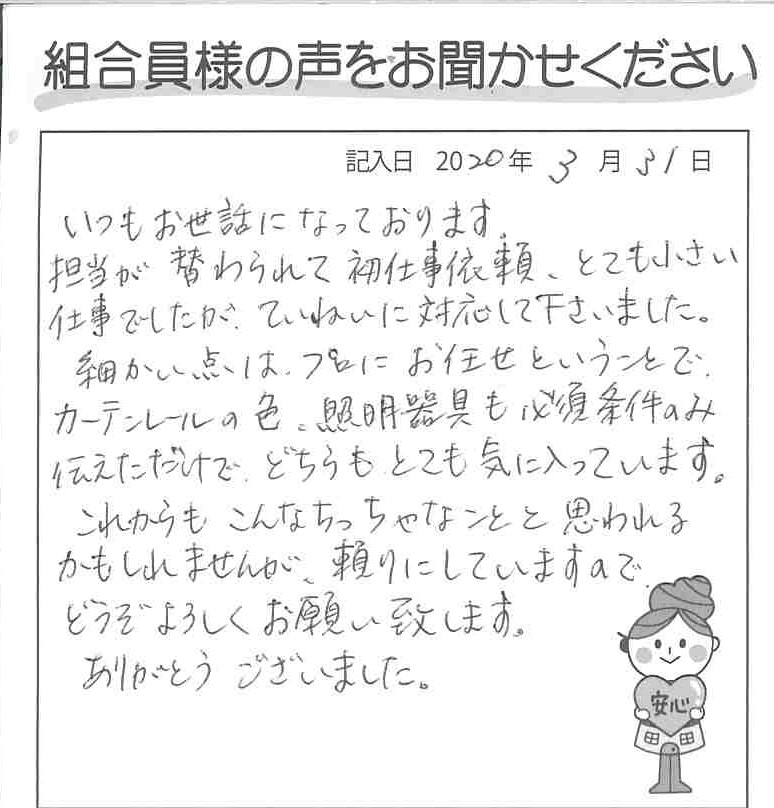 組合員様の声をお聞かせください
記入日 2020年 3月31日
いつもお世話になっております。
担当が 替わられて 初仕事依頼、とても小さい
仕事でしたが、ていねいに対応して下さいました。
細かい点は、プロに お任せということで、
カーテンレールの色、照明器具も必須条件のみ
伝えただけで、どちらも とても気に入っています。
これからも こんなちっちゃなことと 思われる
かもしれませんが、頼りにしていますので、
どうぞよろしくお願い致します。
ありがとう ございました。
安心